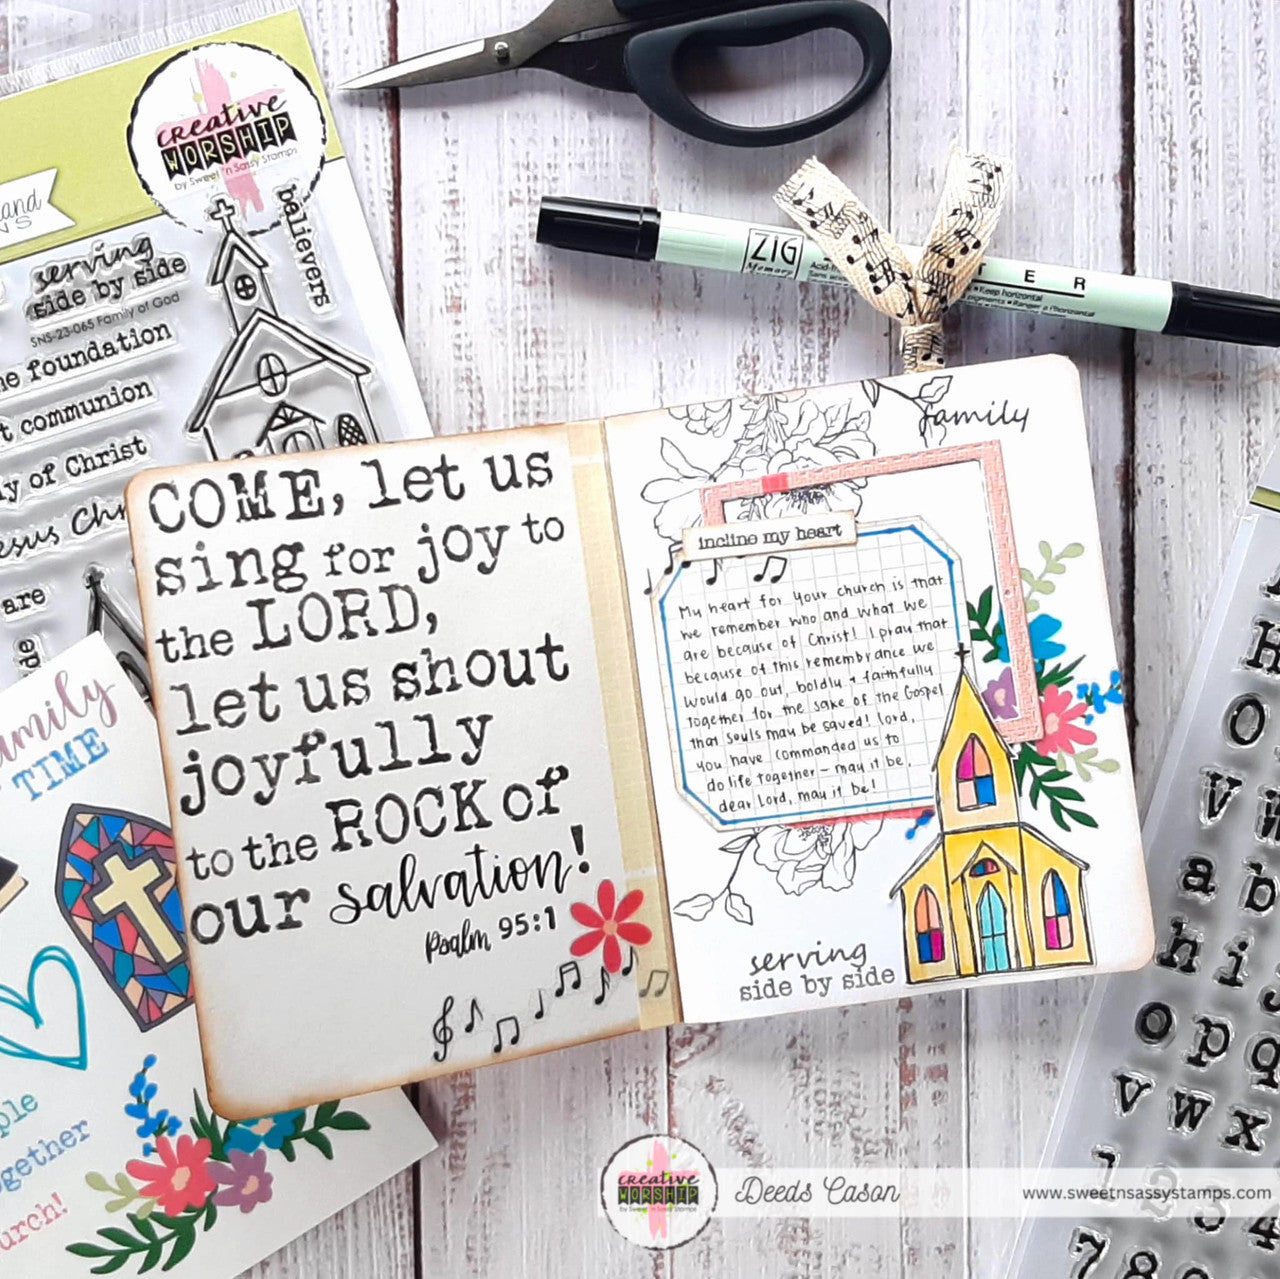 creative
WORSHIP
by Sweet 'n Sassy Stamps
believers
serving
side by side
SNS-23-065 Family of God
foundation
communion
of Christ
are
family
TIME
together
COME, let us
sing for joy to
the LORD,
let us shout
joyfully
to the ROCK of
our salvation!
Psalm 95:1
ZIG
Memory
family
incline my heart
My heart for your church is that
we remember who and what we
are because of Christ! I pray that
because of this remembrance we
would go out, boldly + faithfully
together for the sake of the Gospel
that souls may be saved! Lord,
you have commanded us to
do life together - may it be,
dear Lord, may it be!
serving
side by side
creative
WORSHIP
by Sweet 'n Sassy Stamps
Deeds Cason
www.sweetnsassystamps.com